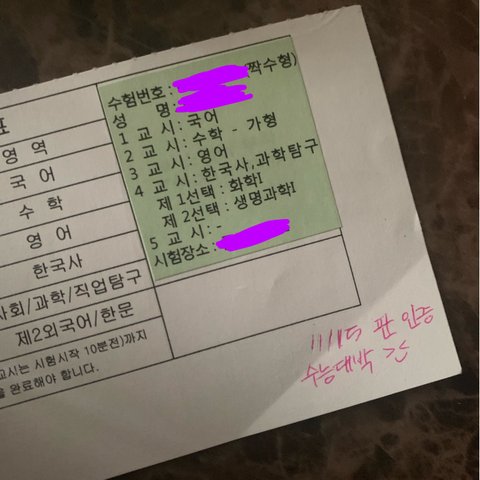 표
영 역
국 어
수 학
영 어
한국사
사회/과학/직업탐구
제2외국어/한문
교시는 시험시작 10분전)까지
을 완료해야 합니다.
수험번호 : (짝수형)
성 명 :
1 교 시 : 국어
2 교 시 : 수학 - 가형
3 교 시 : 영어
4 교 시 : 한국사,과학탐구
제 1선택 : 화학Ⅰ
제 2선택 : 생명과학Ⅰ
5 교 시 : -
시험장소 :
11/15 표 인증
수능대박